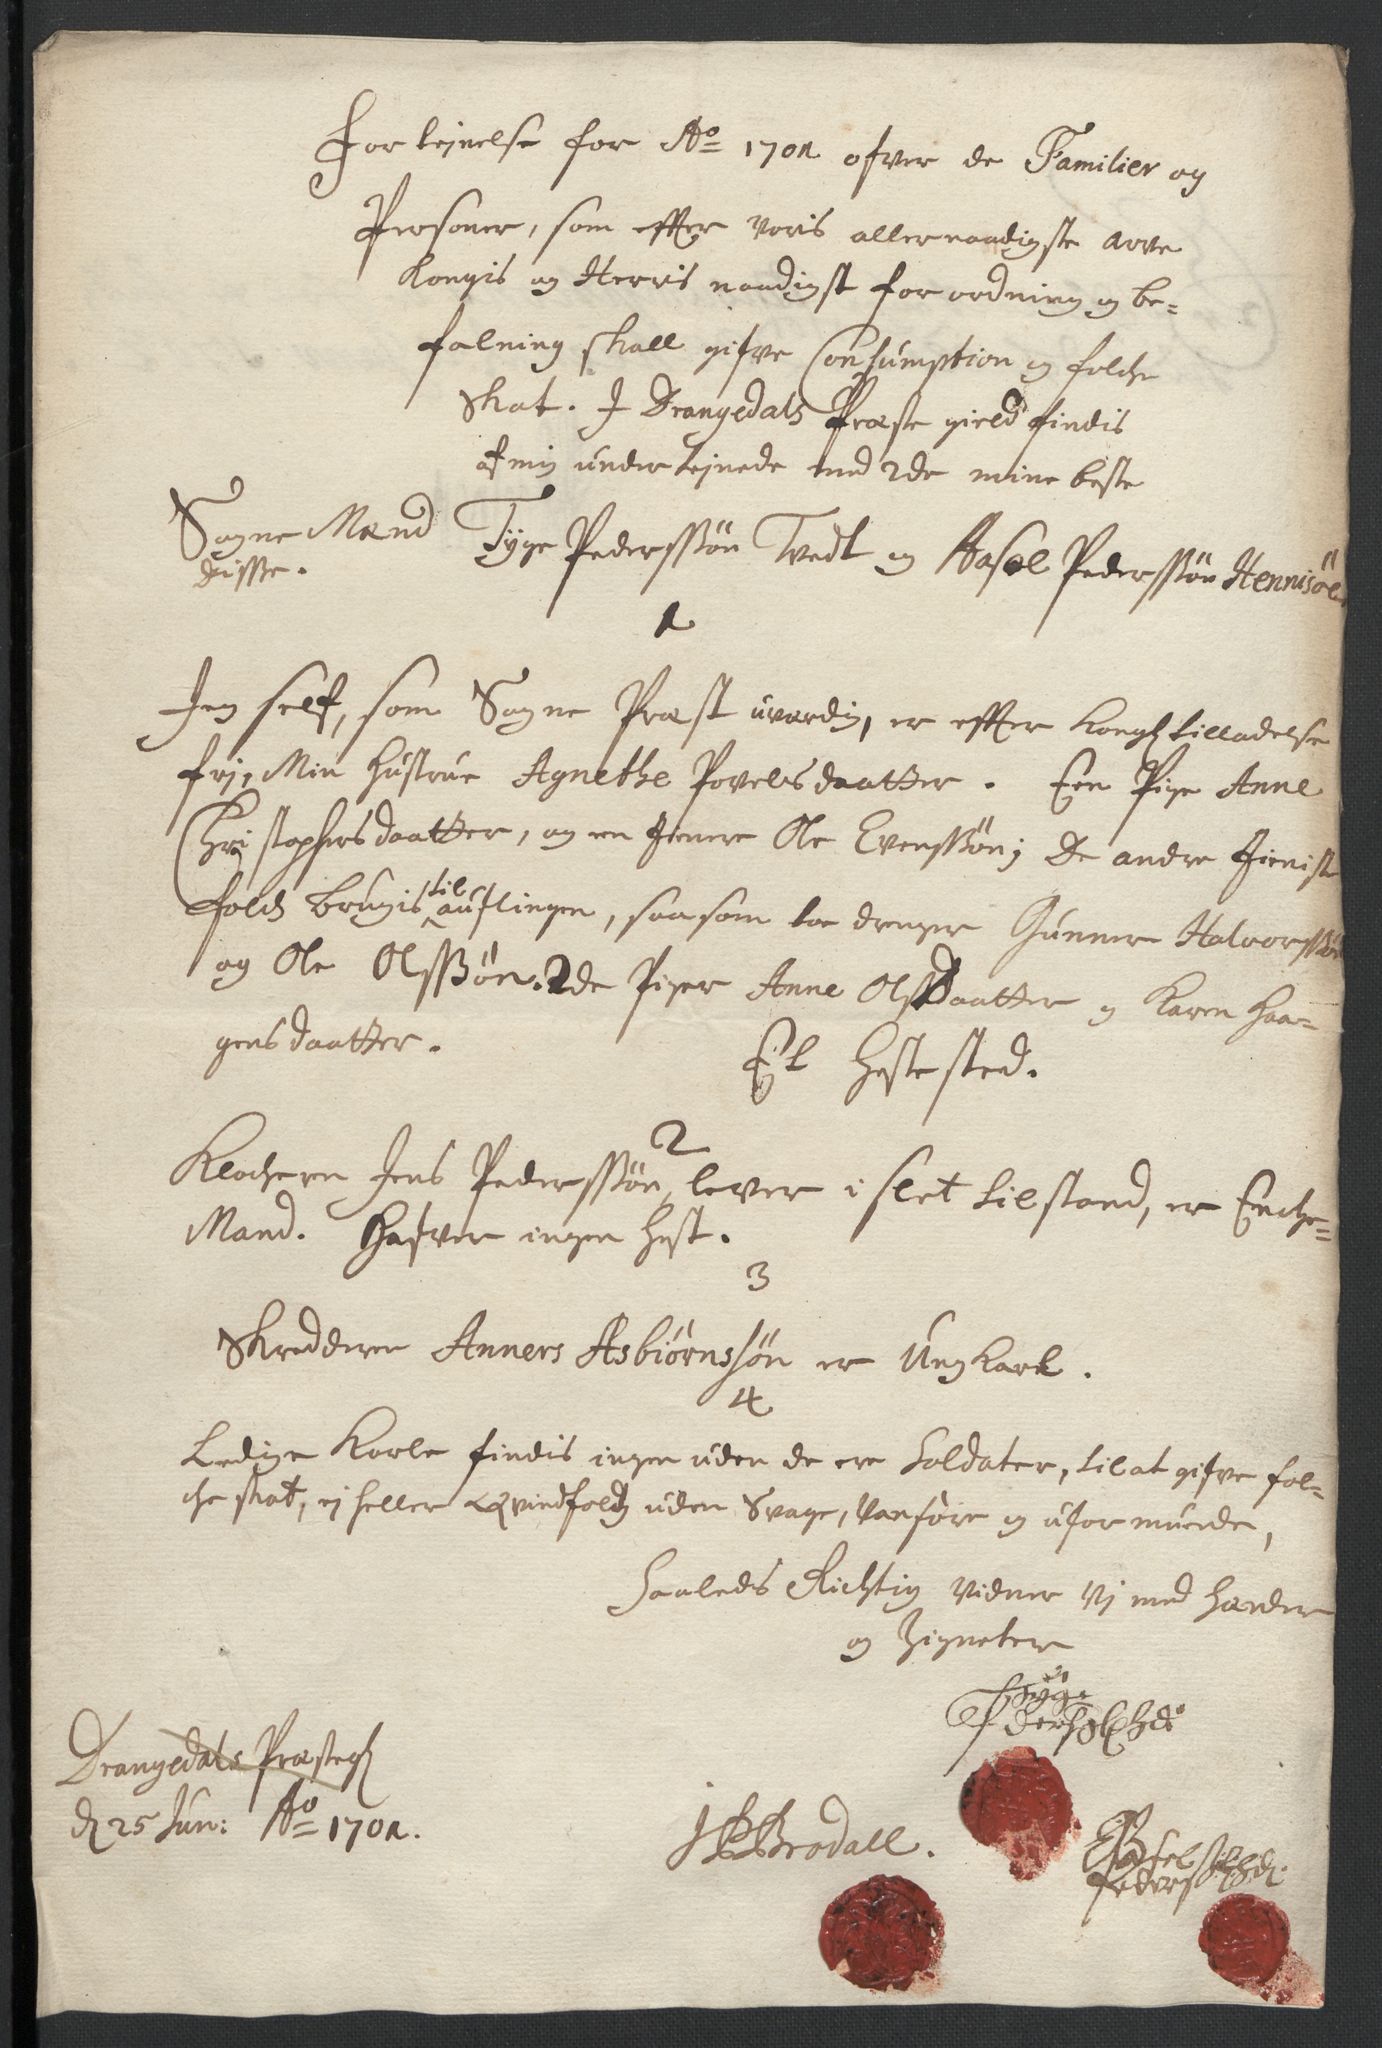 Fortejnelse for Ao 1701 ofver de Familier og
Personer, som effter voris allernaadigste arve
Kongis og Herris naadigst forordning og be=
falning skall gifve Consumption og folche
Skat. J Drangedals Præste gield findis
af mig undertejnede med 2de mine beste
Sogne Mænd Tyge Pederssøn Tvedt og Aasel Pederssøn Hennisøe
disse.
1
Jeg self, som Sogne Præst uværdig, er effter kongl tilladelse
frj, Min hustrue Agnethe Povelsdaatter. Een Pige Anne
Christophersdaatter, og en tienere Ole Evenssøn; De andre tienist
folch brugis til auflingen, saasom toe drenger Gunner Halvorssøn
og Ole Olssøn. 2de Piger Anne Olsdaatter og Karen Haa=
gensdaatter.
Et hestested.
2
Klochern Jens Pederssøn, lever i slet tilstand, er Enche=
Mand. hafver ingen hest.
3
Skredderen Anners Asbiørnssøn er Ung karl.
4
Ledige Karle findis ingen uden de ere Soldater, til at gifve fol=
che skat, ej heller qvindfolch uden Svage, Vanføre og uformuende,
Saaleds Richtig vidner vj med hænder
og Zigneter
Tyge
Pederssøn
Drangedals Præstegl
d 25 Jun: Ao 1701.
JPBrodall.
Aasel
Pederssøn